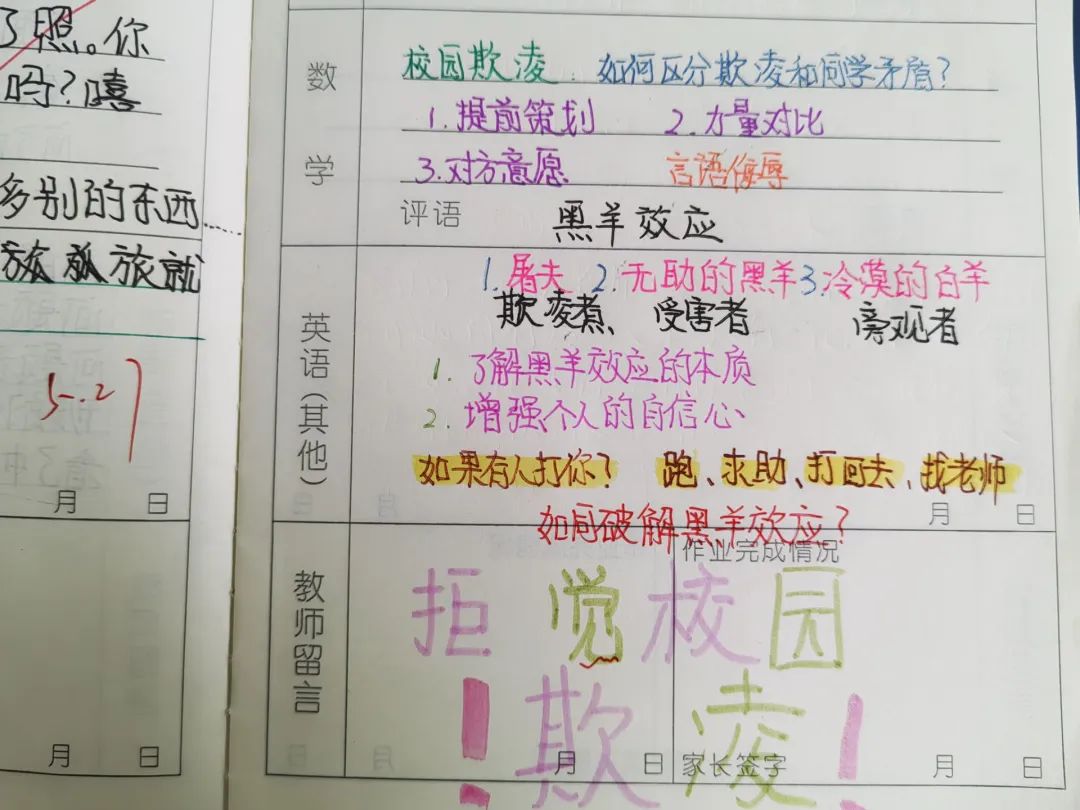 了照。你
吗？嘻
多别的东西
旅就
5.27
月 日
月 日
数学
校园欺凌：如何区分欺凌和同学矛盾？
1.提前策划 2.力量对比
3.对方意愿 言语侮辱
评语 黑羊效应
英语（其他）
1.屠夫 2.无助的黑羊 3.冷漠的白羊
欺凌者、受害者 旁观者
1.了解黑羊效应的本质
2.增强个人的自信心
如果有人打你？ 跑、求助、打回去、找老师
月 日
如何破解黑羊效应？
教师留言
作业完成情况
拒觉校园
！欺凌！
月 日
家长签字 月 日